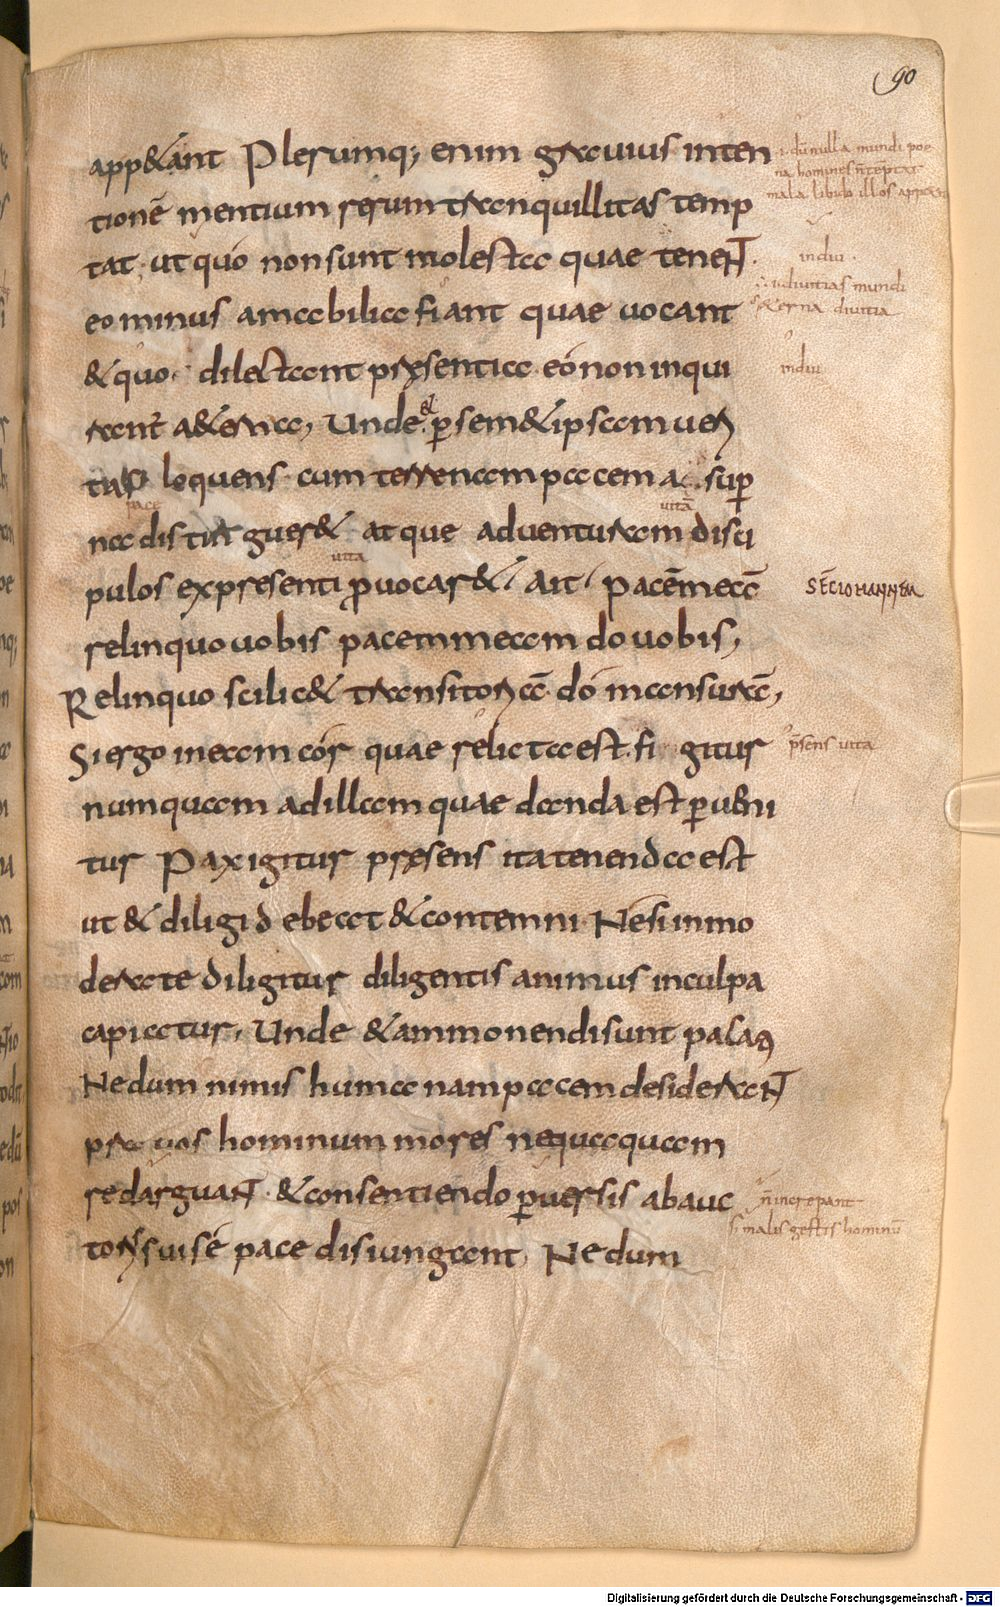 90
app&ant Plerumq; enim grauius inten
tionē mentium rerum tranquillitas temp
tat; ut quo non sunt molesta quae teneNT.
eo minus amabilia fiant quae uocant
& quo dilectant presentia eo non inqui
rant a&erna, Unde & p̱sem&ipsam ueri
tas loquens cum terrenam pacem a sup̱
na distinguer& atque aduenturam disci
pulos ex presenti puocar& ait pacē meā
relinquo uobis pacem meam do uobis,
Relinquo scilic& transitoriā do mansurā,
Si ergo in eam cor quae relicta est figitur
numquam ad illam quae danda est p̱ueni
tur Pax igitur presens ita tenenda est
ut & diligi debeat & contemni Ne si inmo
derate diligitur diligentis animus in culpa
capiatur, Unde & ammonendi sunt pacari
Ne dum nimis humanam pacem desideraNT
prauos hominum mores nequaquam
redarguaNT & consentiendo p̱uersis ab auc
toris sui se pace disiungant Ne dum
.i. dū nulla mundi poe
na homines
mala libido illos
indiu
diuitias mundi
s &erna diuitia
indiu
pace
uitā
uita
SĒC IOHANNEM
p̄sens uita
n̄ increpant
s malis gestis hominū
Digitalisierung gefördert durch die Deutsche Forschungsgemeinschaft - DFG